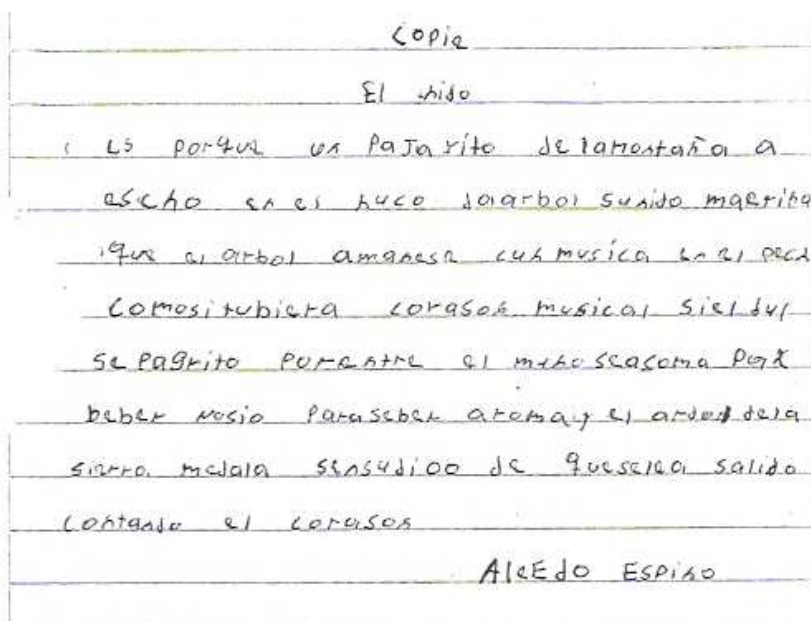 Copia
El nido
Es porque un pajarito de lamontaña a
escho en el huco daarbol sunido maerina
que el arbol amanese cun musica en el pech
comositubiera corason musical sieldul
se pagrito porentre el mehoseasoma para
beber rosio paraseber aroma y el arbol dela
sierra medala sensudioo de queselea salido
contando el corason
AlcEdo ESPino